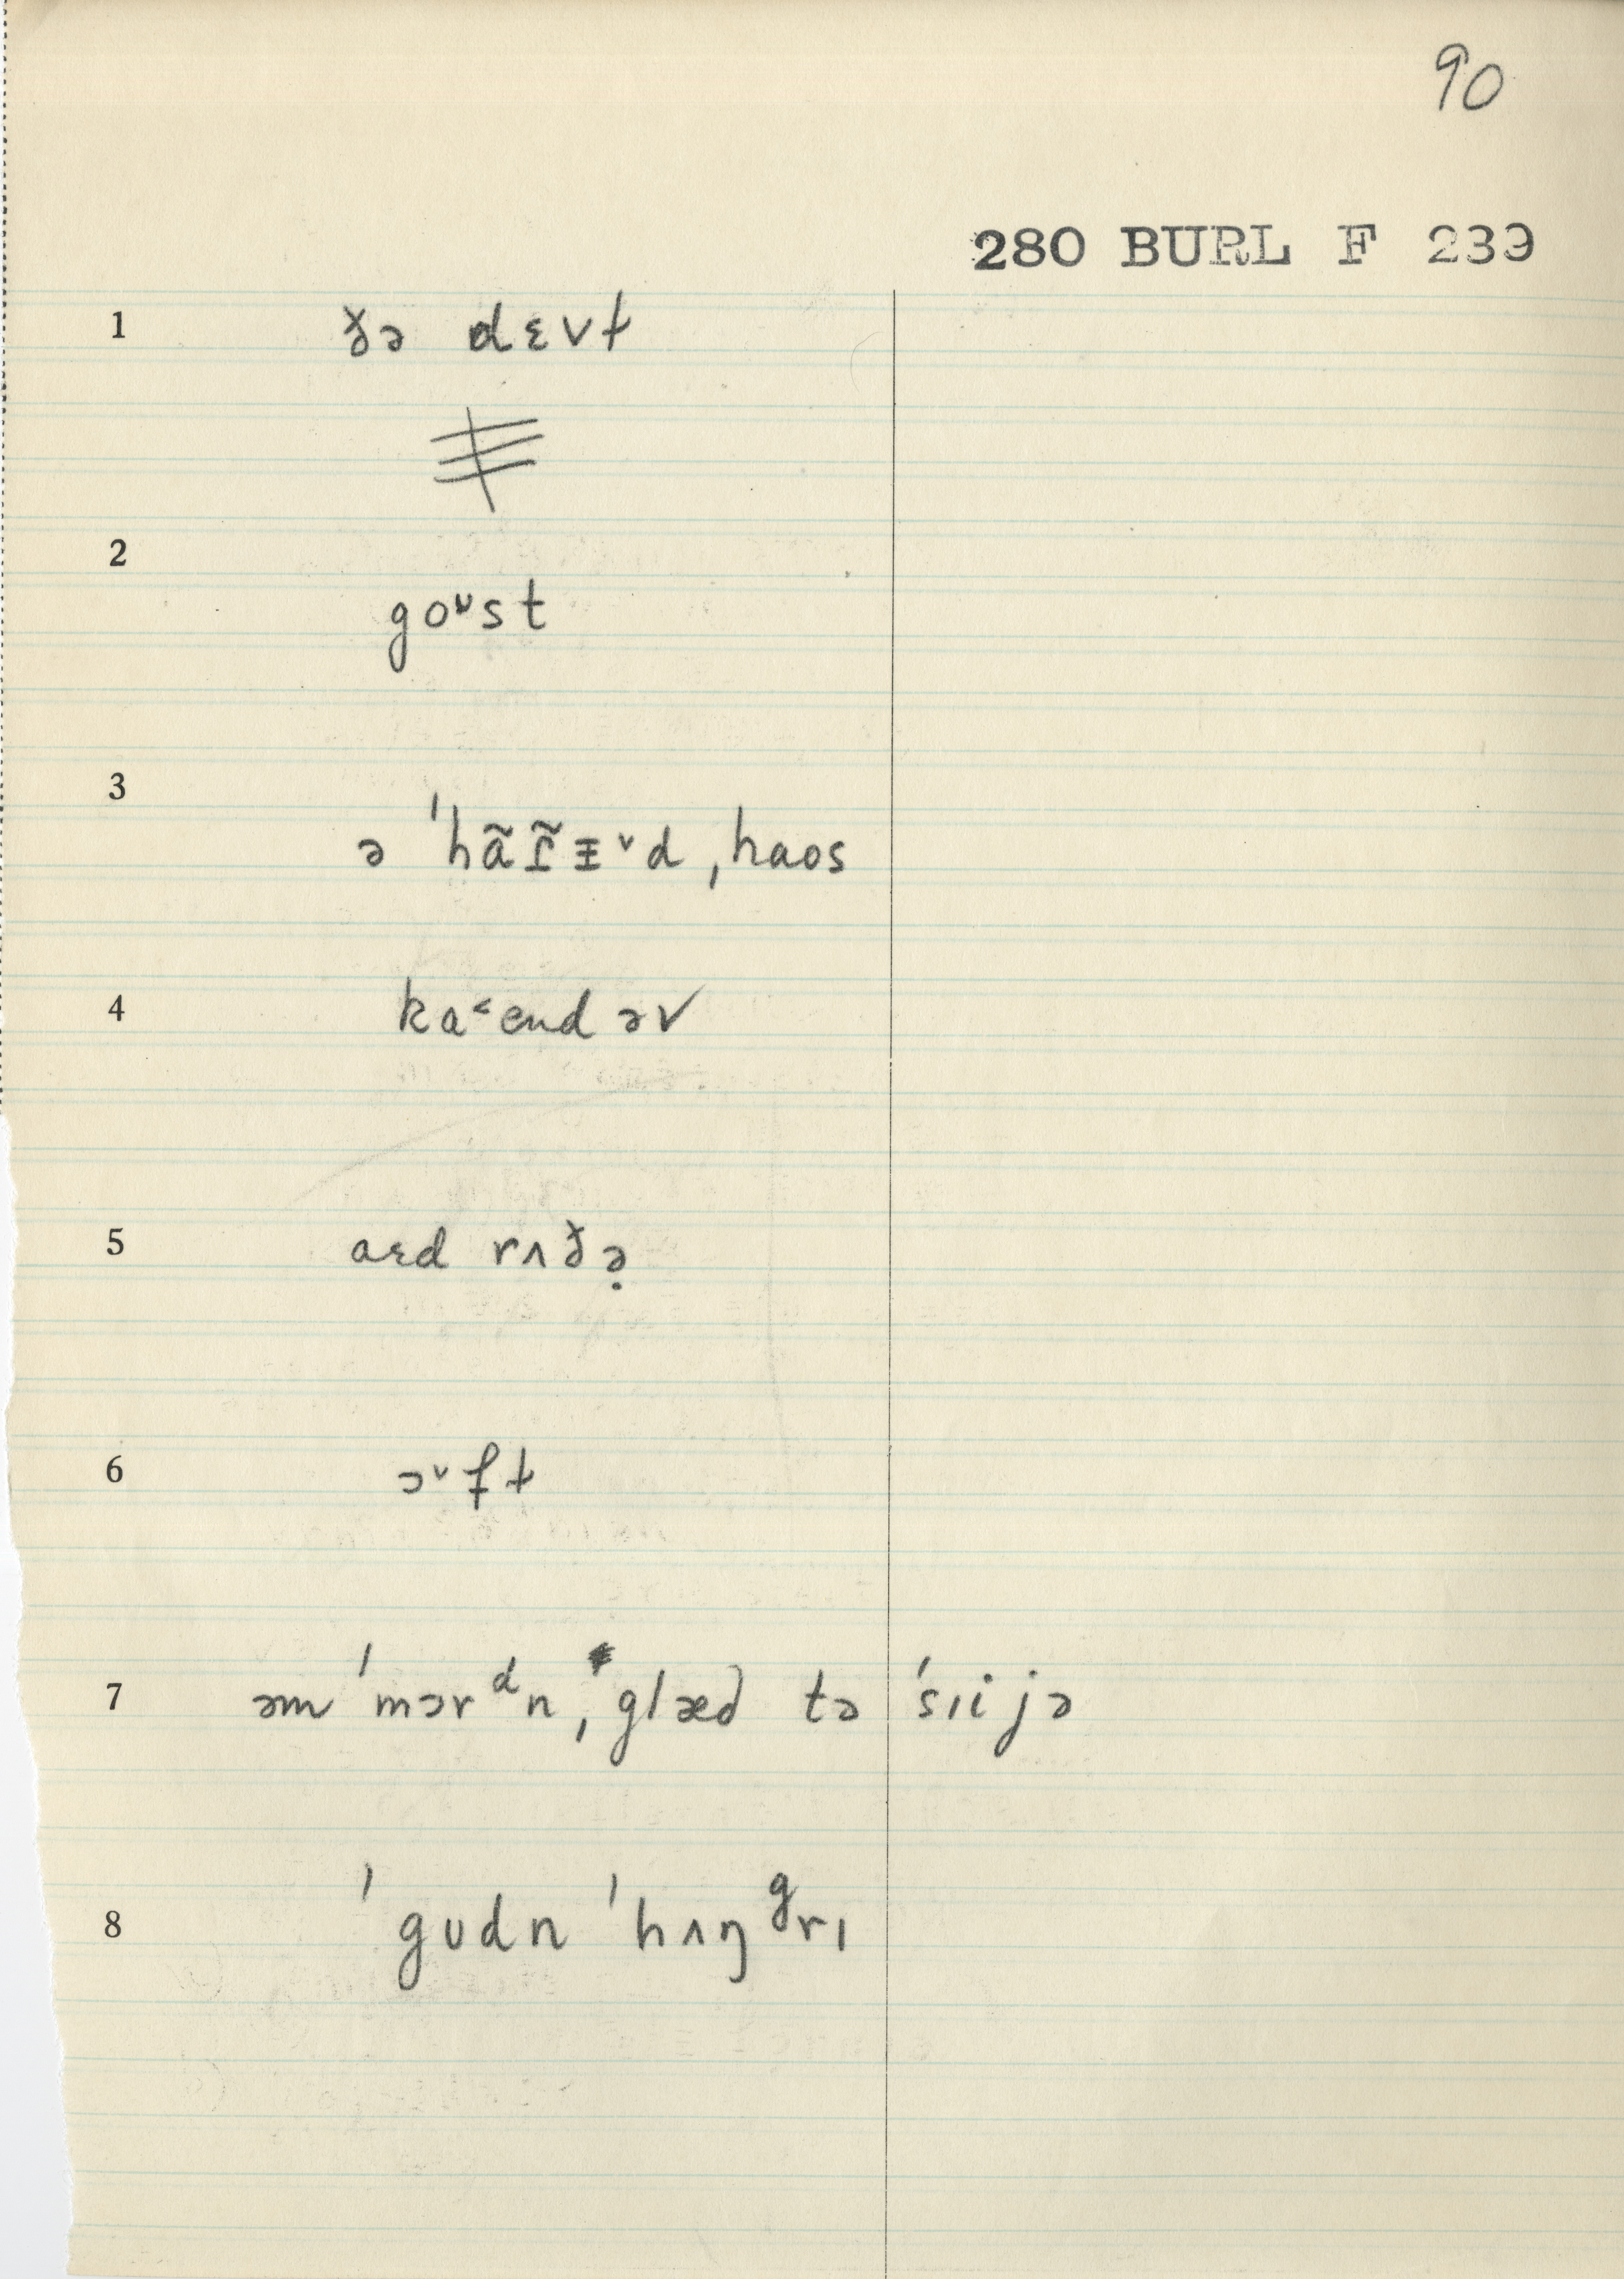 90
280 BURL F 239
1 ðə dɛvɫ
2
goᶷst
3
ə ˈhãɪ̃ɪ˅d ˌhaos
4 ka˂end əv
5 aɛd rʌðə̣
6 ɔ˅fɫ
7 əm ˈmɔrᵈn, glæd tə ˈsɪi jə
8 ˈgʊdn ˈhʌŋᵍrɪ